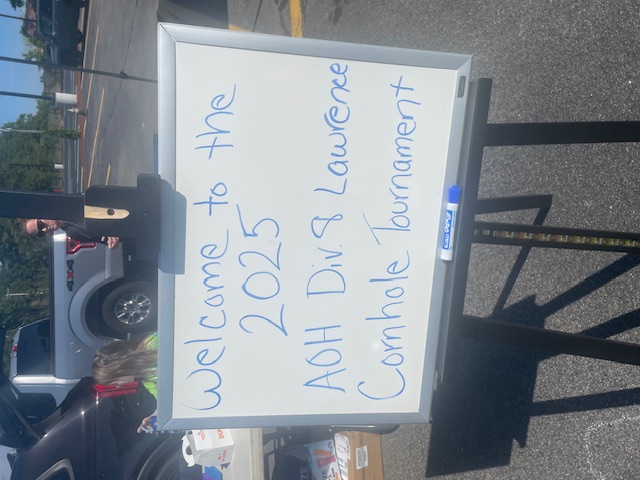 Welcome to the
2025
AOH Div. 8 Lawrence
Cornhole Tournament
EXPO